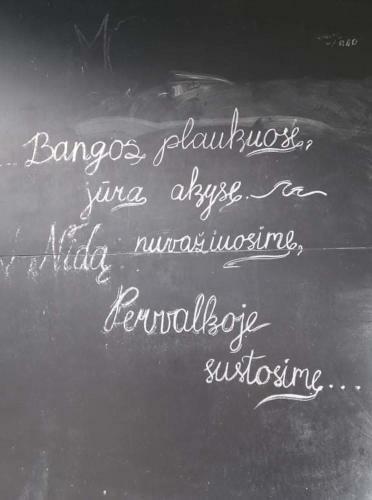 Bangos plaukuose,
jūra akyse.
Nidą nuvažiuosime,
Pervalkoje
sustosime...